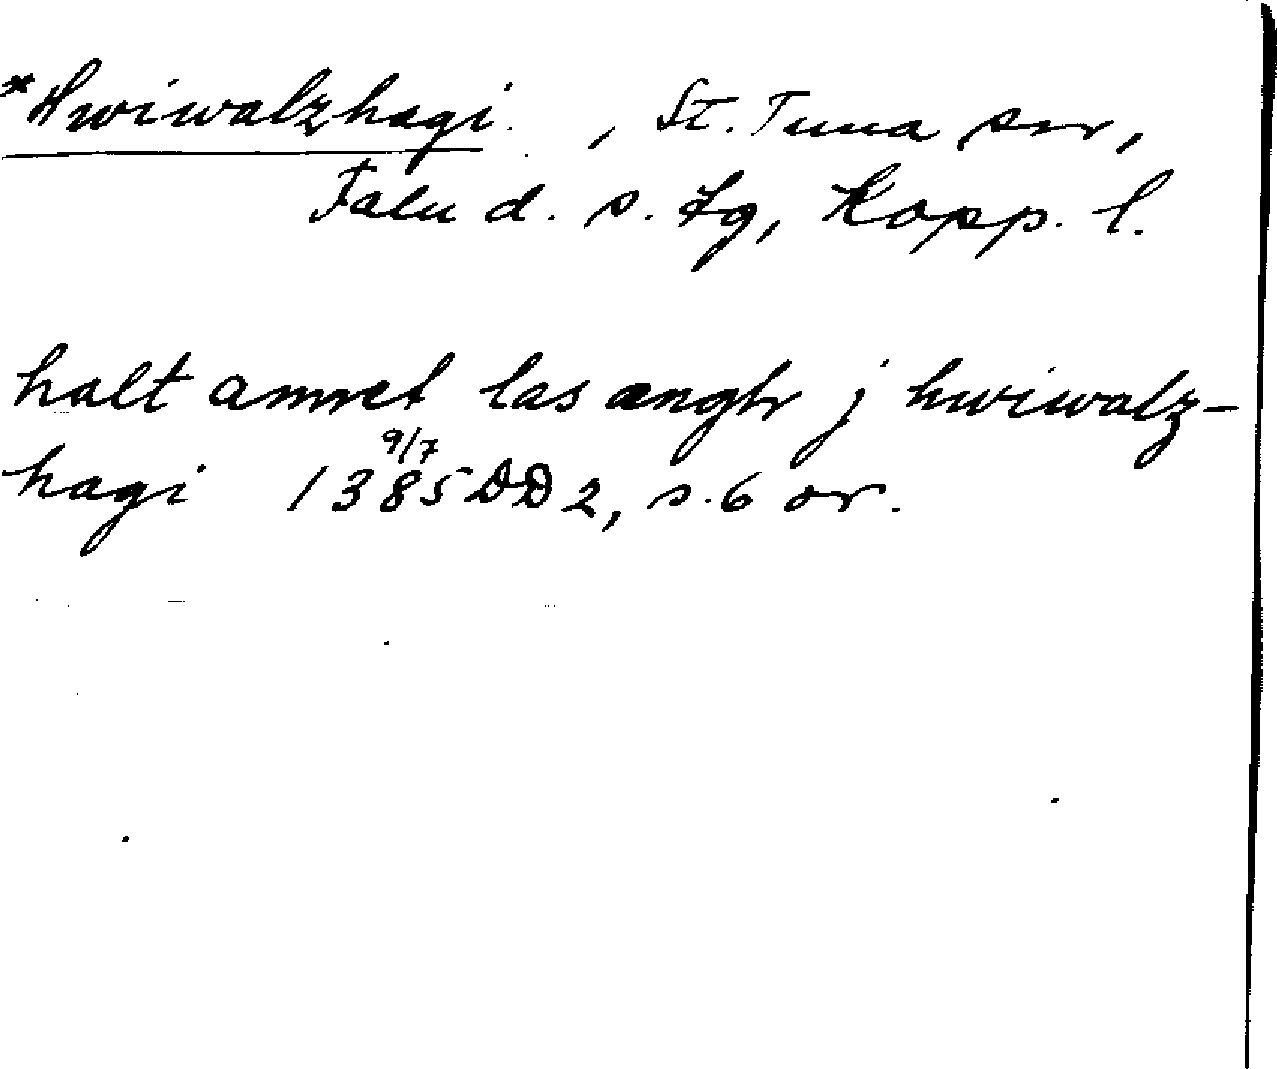 *Hwiwalzhagi, St. Tuna sn,
Falu d. s. fg, Kopp. l.
halt annet las ængh j hwiwalz-
hagi 1385 9/7 DD 2, s. 6 or.